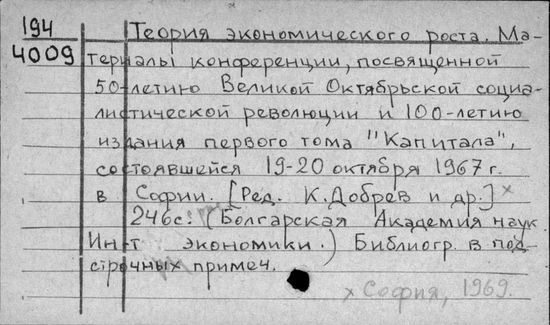 194
4009
Теория экономического роста. Ма-
териалы конференции, посвященной
50-летию Великой Октябрьской социа-
листической революции и 100-летию
издания первого тома "Капитала",
состоявшейся 19-20 октября 1967 г.
в Софии. [Ред. К. Добрев и др.] ×
246с. (Болгарская Академия наук
Ин-т экономики.) Библиогр. в под-
строчных примеч.
× София, 1969.